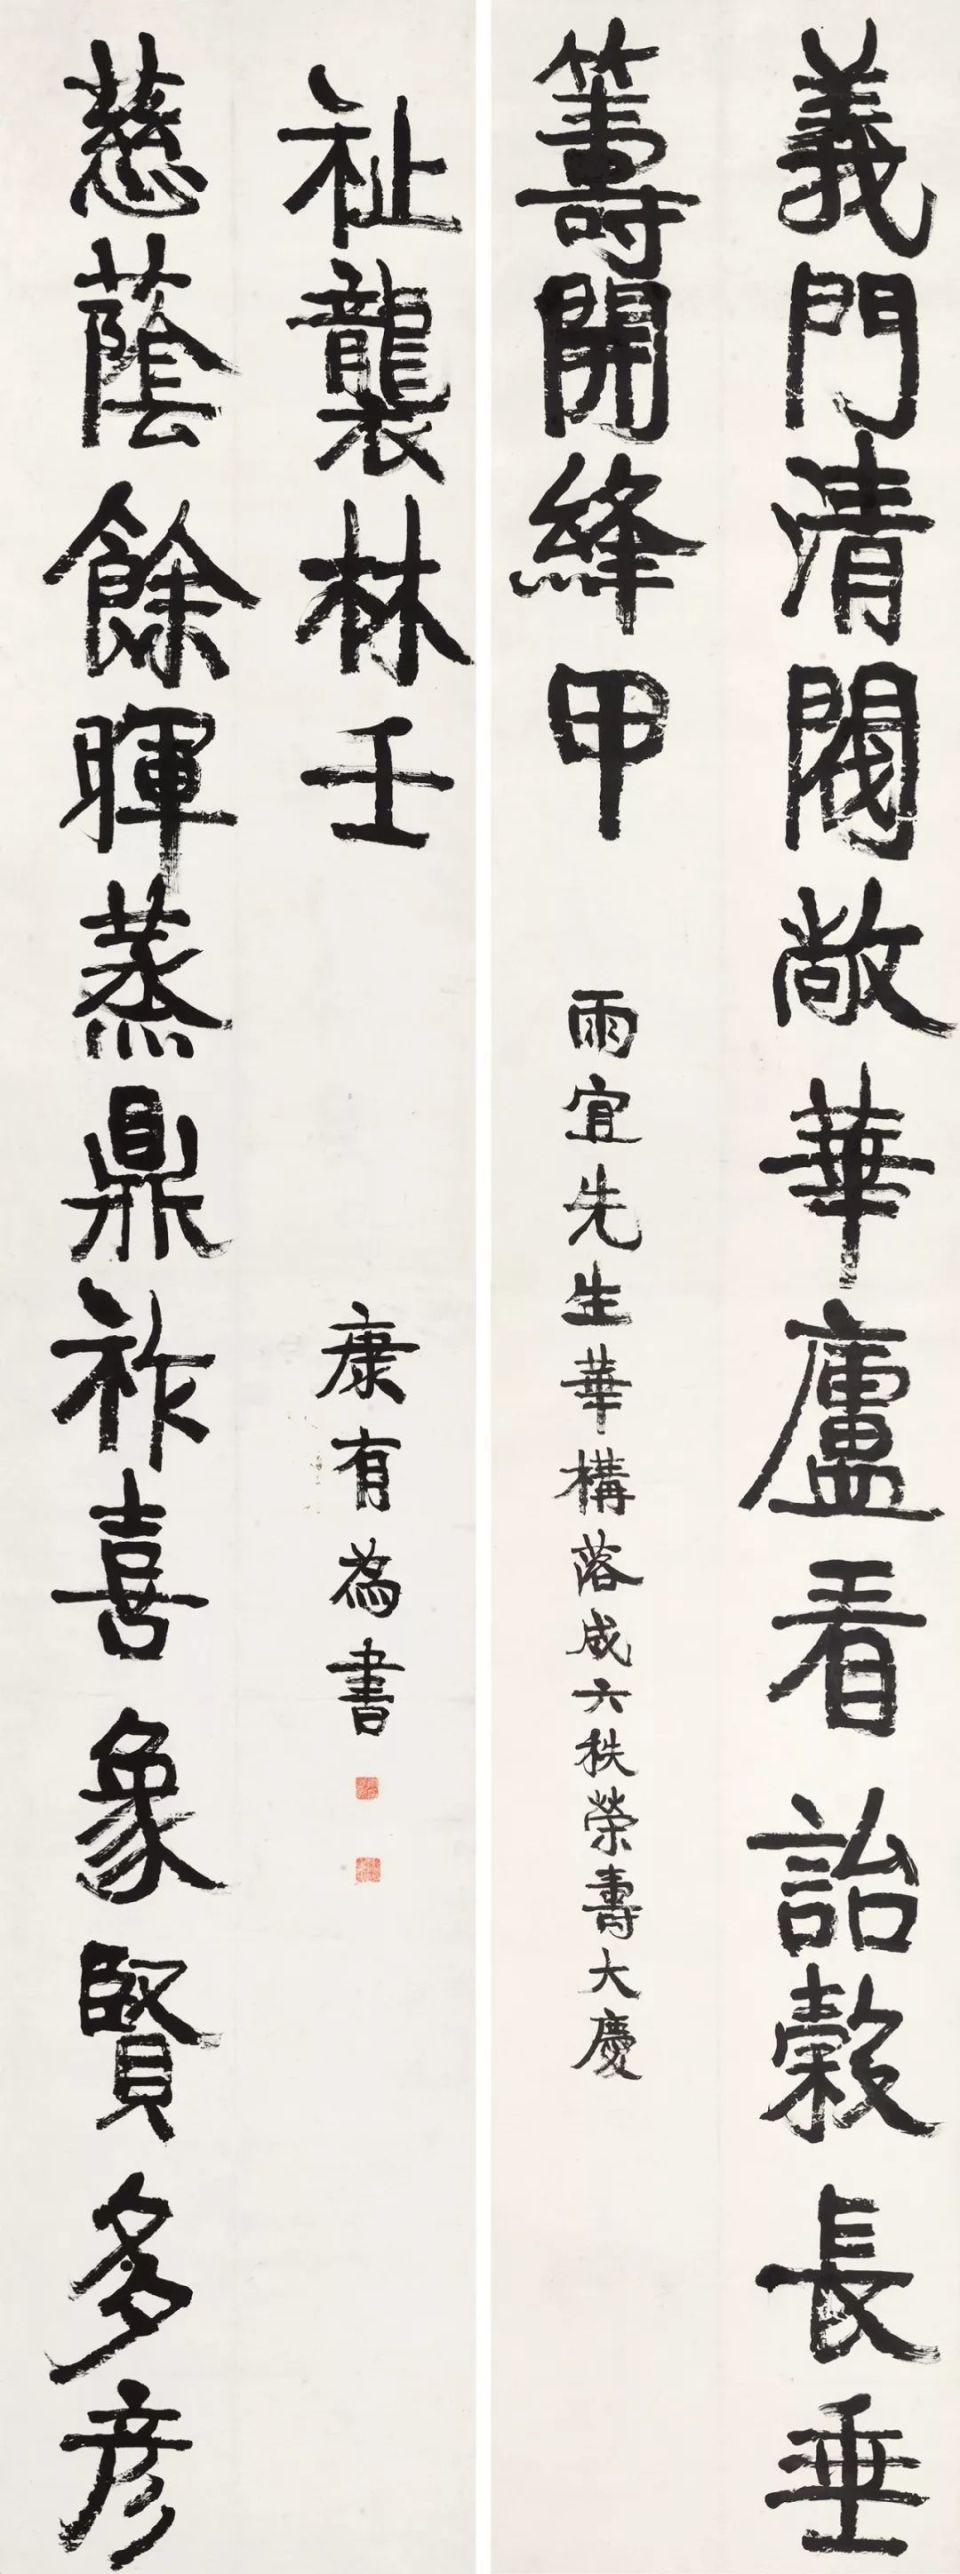 義門清閥敞華廬看詒穀長垂
籌開絳甲
雨宜先生華構落成六秩榮壽大慶
慈蔭餘暉蒸鼎祚喜象賢多彦
祉襲林壬
康有為書